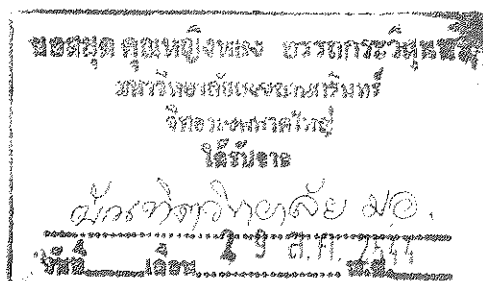 หอสมุด คุณหญิงหลง อรรถกระวีสุนทร
มหาวิทยาลัยสงขลานครินทร์
วิทยาเขตหาดใหญ่
ได้รับจาก
บัณฑิตวิทยาลัย มอ.
วันที่ เดือน 29 ส.ค. 2544 พ.ศ.